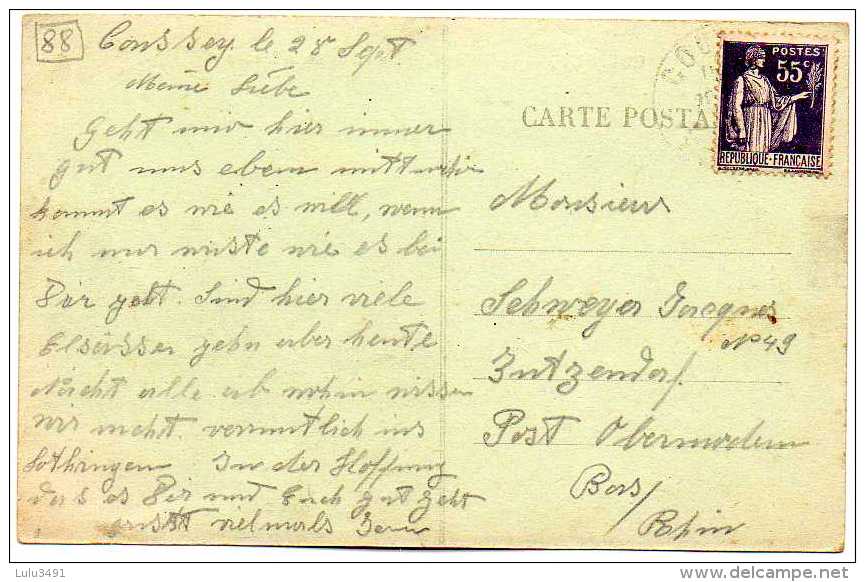 88
Coussey le 28 Sept
Meine Liebe
Geht mir hier immer
gut uns eben mitt
kommt es wie es will, wenn
ich nur wüste wie es bei
Dir geht. Sind hier viele
Elsässer gehn aber heute
Nacht alle ab wohin wissen
wir nicht. vermutlich ins
Lothringen In der Hoffnung
das es Dir und Euch gut geht
grüsst vielmals
CARTE POSTA
POSTES
55c
REPUBLIQUE·FRANCAISE
Monsieur
Schweyer Jacques
No 49
Zutzendorf
Post Obermodern
Bas/
Rhin
Lulu3491